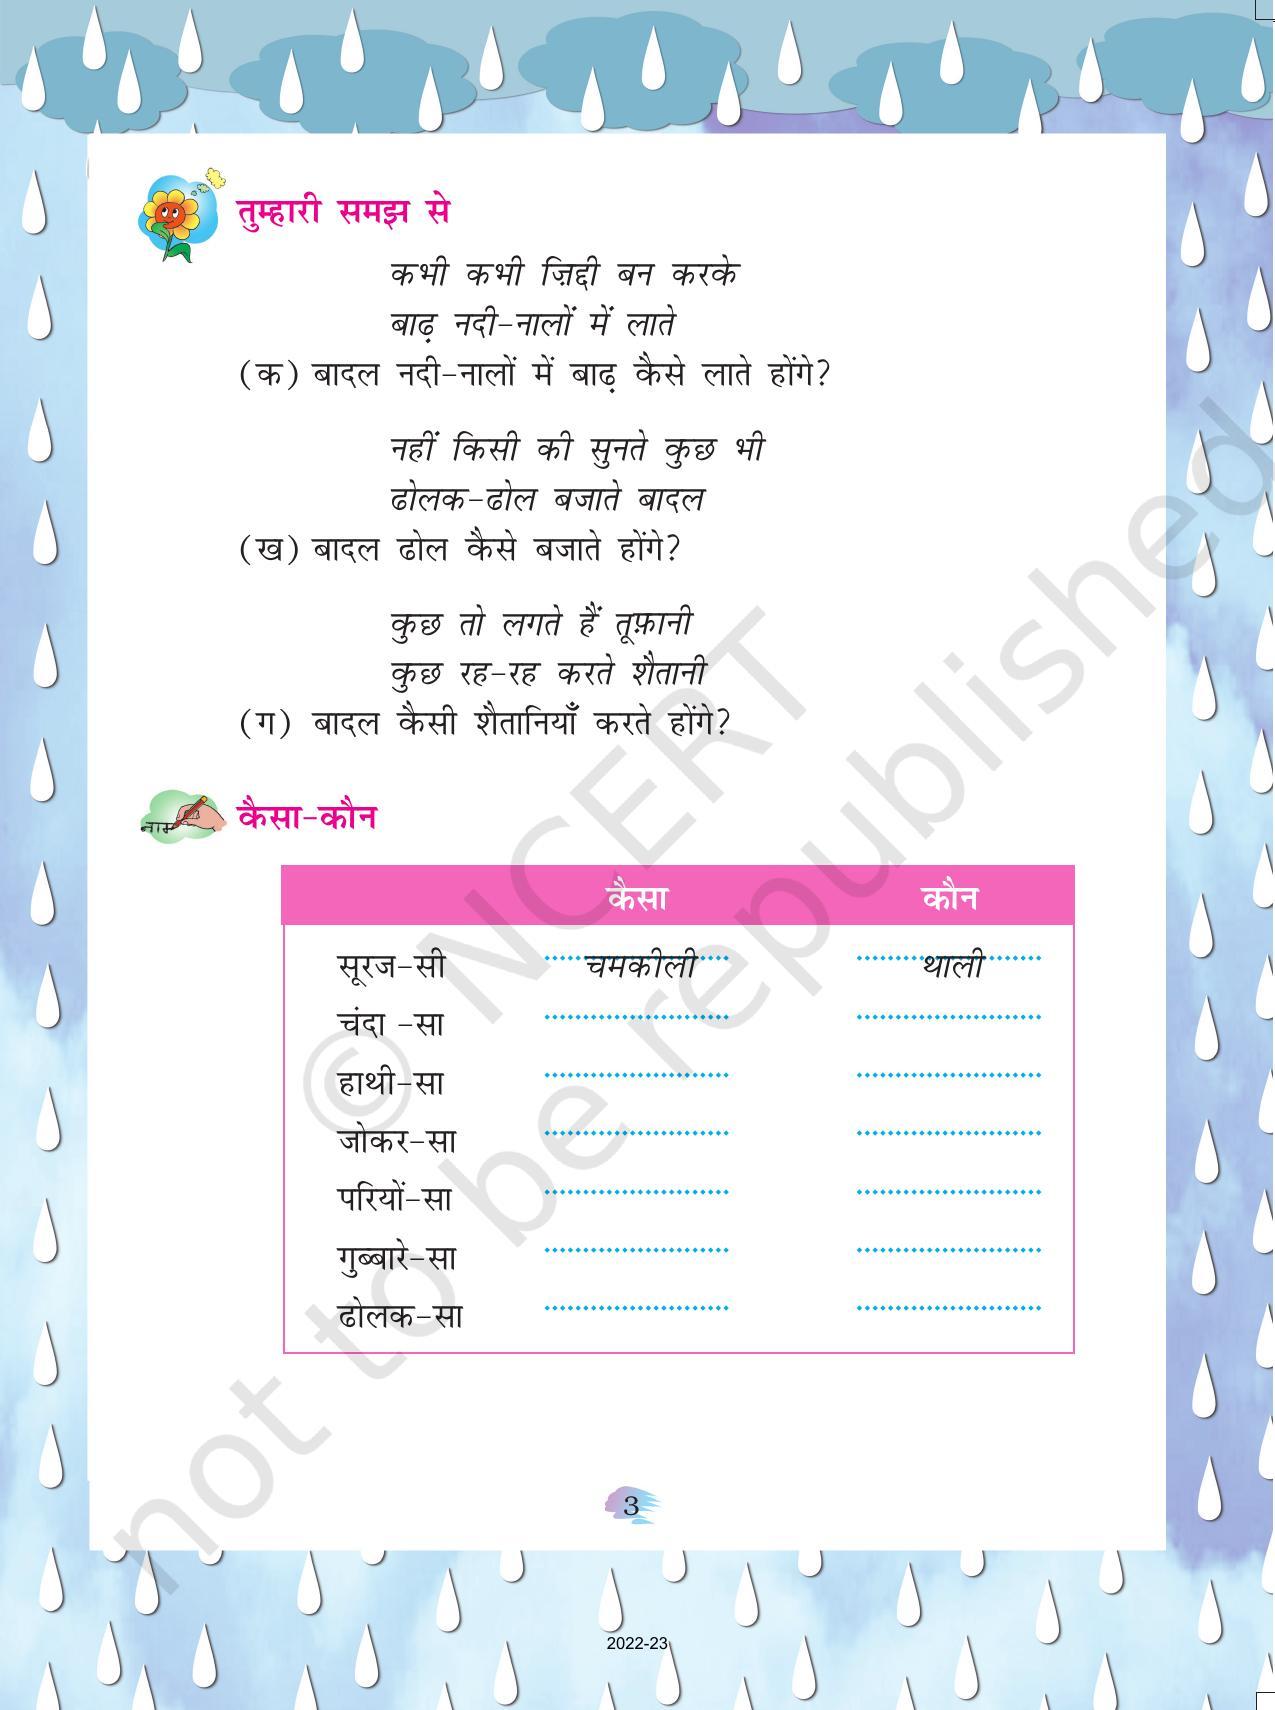 तुम्हारी समझ से
कभी कभी ज़िद्दी बन करके
बाढ़ नदी-नालों में लाते
(क) बादल नदी-नालों में बाढ़ कैसे लाते होंगे?
नहीं किसी की सुनते कुछ भी
ढोलक-ढोल बजाते बादल
(ख) बादल ढोल कैसे बजाते होंगे?
कुछ तो लगते हैं तूफ़ानी
कुछ रह-रह करते शैतानी
(ग) बादल कैसी शैतानियाँ करते होंगे?
नाम
कैसा-कौन
कैसा कौन
सूरज-सी चमकीली थाली
चंदा -सा
हाथी-सा
जोकर-सा
परियों-सा
गुब्बारे-सा
ढोलक-सा
© NCERT
not to be republished
3
2022-23